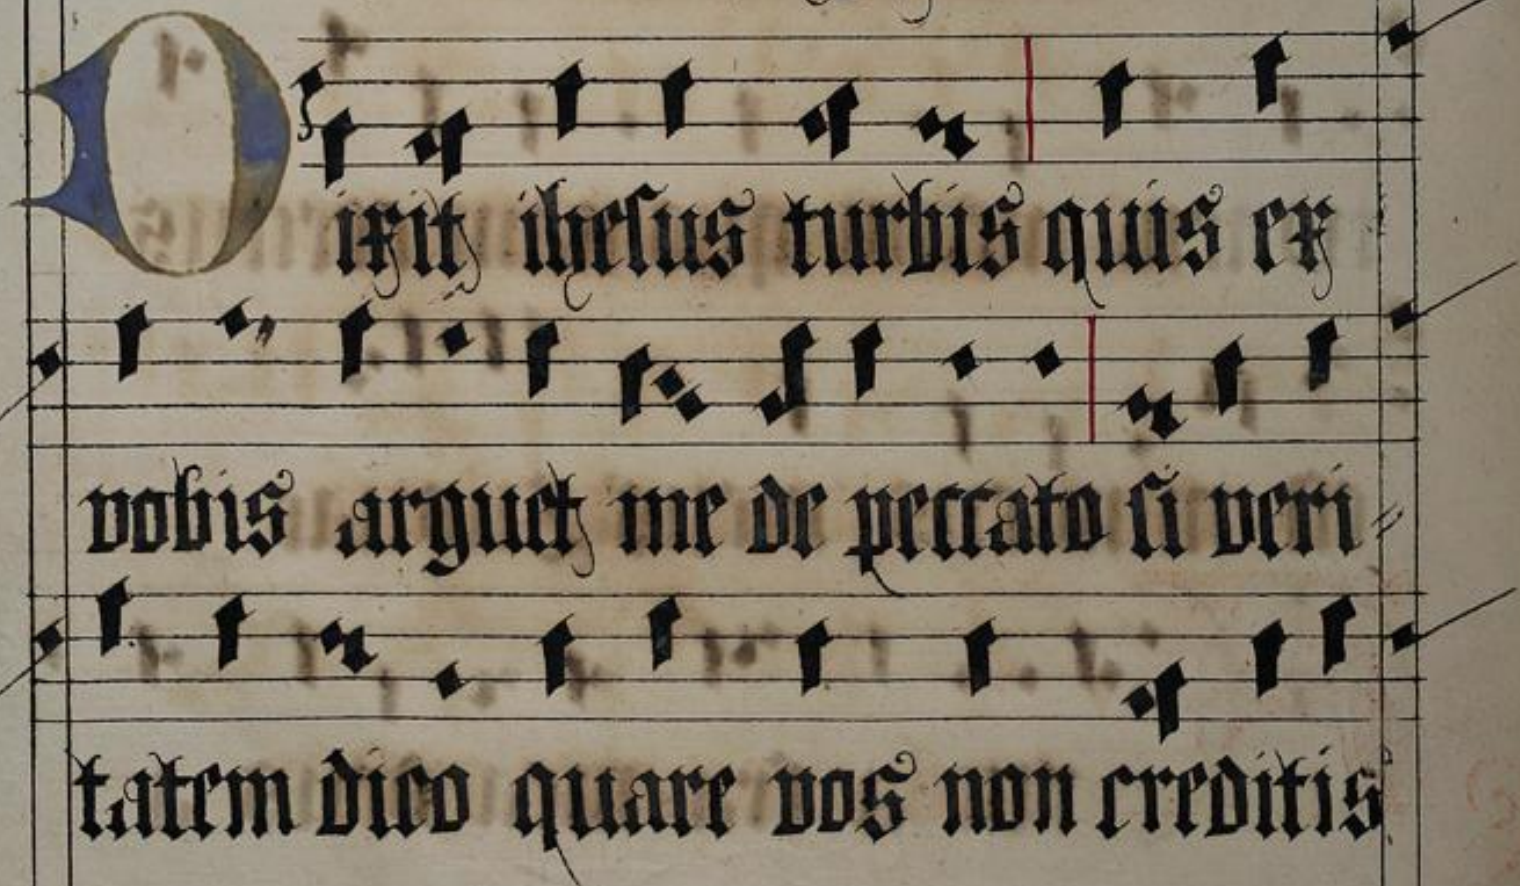 Dixit ihesus turbis quis ex
vobis arguet me de peccato si veri
tatem dico quare vos non creditis